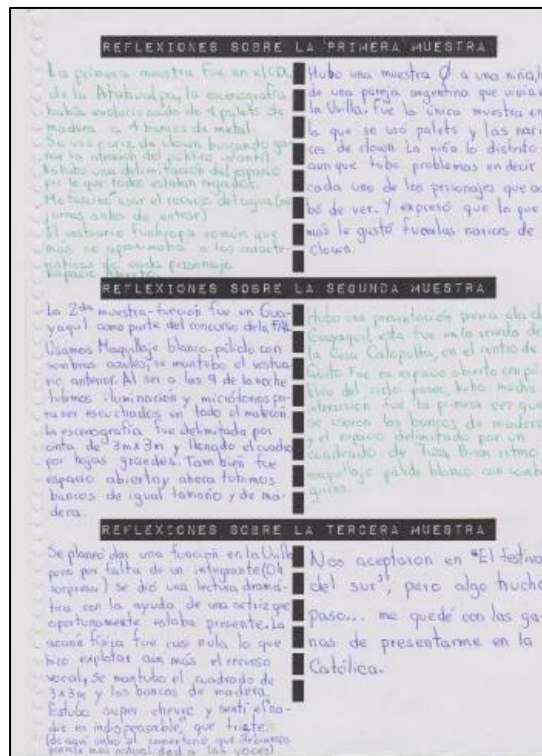 REFLEXIONES SOBRE LA PRIMERA MUESTRA
La primera muestra fue en el CDC
de la Atahualpa, la escenografía
había evolucionado de 4 palets de
madera a 4 bancos de metal.
Se uso nariz de clown buscando ga
nar la atención del público infantil
Estubo una delimitación del espacio
por lo que todos estaban regados.
Me fascinó usar el recurso del agua
antes de entrar)
El vestuario fue ropa común que
más se aproximaba a las caracte-
rísticas de cada personaje
Espacio abierto.
Hubo una muestra Ø a una niña h
de una pareja argentina que vivia e
la Uvilla. Fue la única muestra en
la que se usó palets y las nari
ces de clown. La niña lo disfrutó
aunque tubo problemas en decir
cada uno de los personajes que aca
bó de ver. Y expresó que lo que
más le gustó fueron las narices de
clown.
REFLEXIONES SOBRE LA SEGUNDA MUESTRA
La 2da muestra-función fue en Gua-
yaquil como parte del concurso de la FAL
Usamos Maquillaje blanco-pálido con
sombras azules, se mantubo el vestua-
rio anterior. Al ser a las 9 de la noche
tubimos iluminación y micrófonos pa-
ra ser escuchados en todo el malecón
la escenografía fue delimitada por
cinta de 3mx3m y llenado el cuadro
por hojas grandes. También fue
espacio abierto y ahora tubimos
bancos de igual tamaño y de ma-
dera.
Hubo una presentación previa a la de
Guayaquil, esta fue en la vereda de
la Casa Catapulta, en el centro de
Quito. Fue en espacio abierto con pú
blico del ciclo paseo, hubo mucha
interacción fue la primera vez que
se usaron los bancos de madera
y el espacio delimitado por un
cuadrado de Tiza. Buen ritmo
maquillaje pálido blanco con somb
grices.
REFLEXIONES SOBRE LA TERCERA MUESTRA
Se planeó dar una función en la Uvilla
pero por falta de un integrante (Oh
sorpresa) se dió una lectura dramá-
tica con la ayuda de una actriz que
oportunamente estaba presente. La
acción física fue casi nula lo que
hizo explotar aún más el recurso
vocal, se mantubo el cuadrado de
3x3m y los bancos de madera.
Estubo super chevre y sentí el "na-
die es indispensable", que triste.
(de aquí salió el comentario que debíamos
ponerle más actualidad a las voces)
Nos aceptaron en "El festiva
del sur", pero algo trucho
paso... me quedé con las ga-
nas de presentarme en la
Católica.